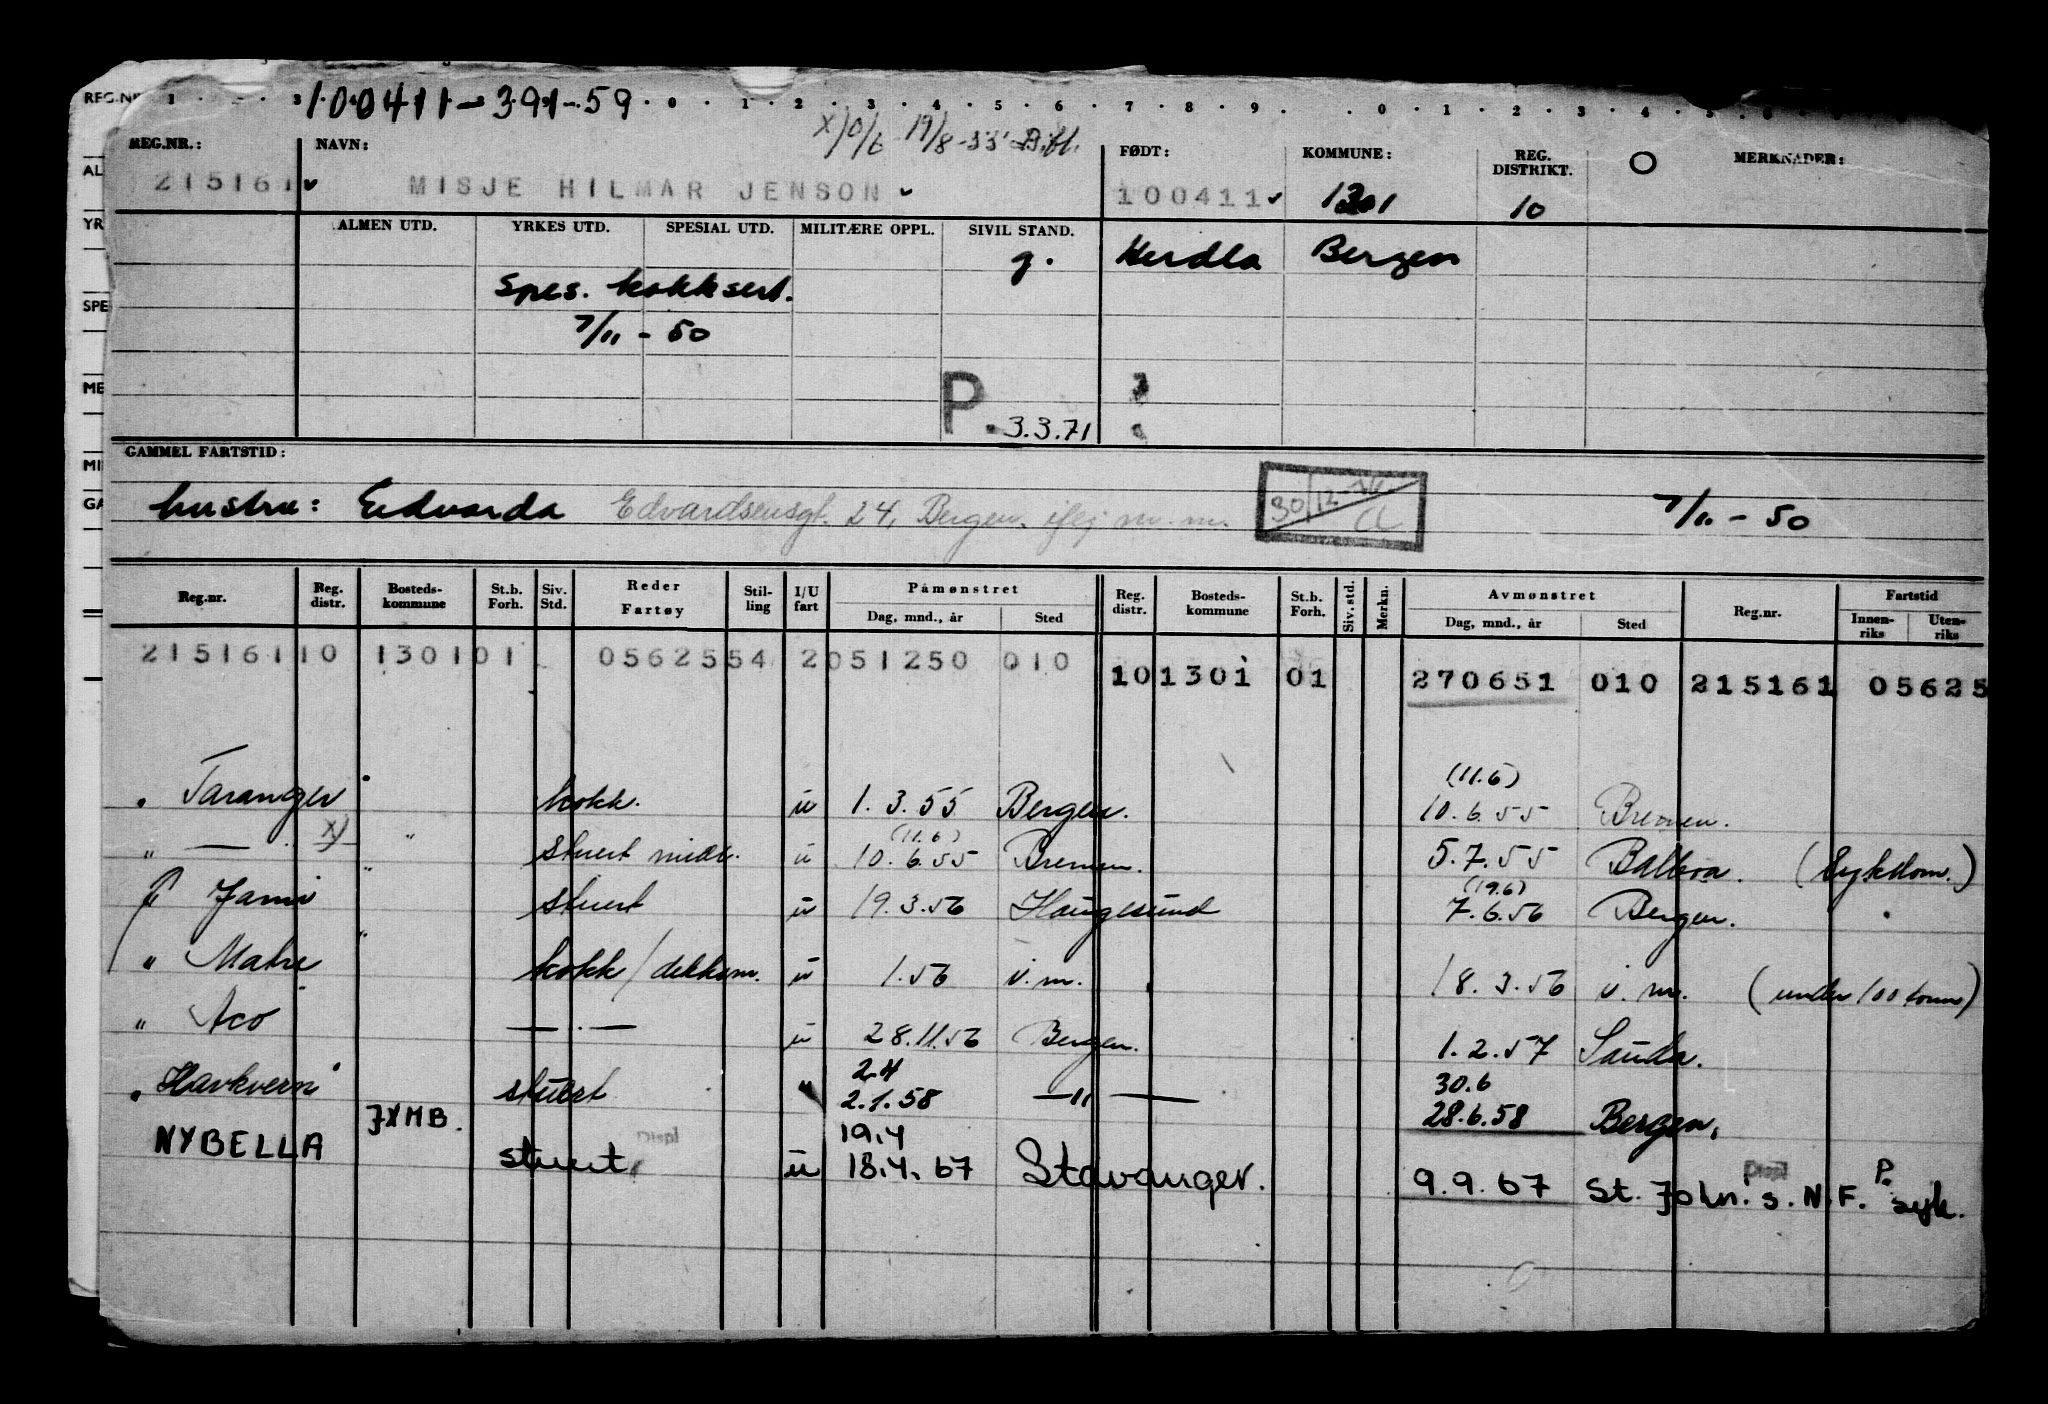 100411-391-59
REG.NR.: NAVN: x) 0/6 19/8-55 FØDT: KOMMUNE: REG. DISTRIKT. O MERKNADER:
215161 MISJE HILMAR JENSON 100411 1301 10
ALMEN UTD. YRKES UTD. SPESIAL UTD. MILITÆRE OPPL. SIVIL STAND.
g. Herdla Bergen
Spes. kokksert.
7/11 - 50
P. 3.3.71
GAMMEL FARTSTID:
hustru: Edvarda Edvardsensgt. 24, Bergen. 30/12 7/11 - 50
Reg.nr. Reg. distr. Bosteds-kommune St.b. Forh. Siv. Std. Reder Fartøy Stil-ling I/U fart Påmønstret Dag, mnd., år Sted Reg. distr. Bosteds-kommune St.b. Forh. Siv. std. Merkn. Avmønstret Dag, mnd., år Sted Reg.nr. Fartstid Innen-riks Uten-riks
215161 10 1301 01 0562554 2 051250 010 10 1301 01 270651 010 215161 05625
" Taranger kokk. u 1.3.55 Bergen. (11.6) 10.6.55 Bremen.
" — x) " stuert midl. u (11.6) 10.6.55 Bremen. 5.7.55 Balboa. (Sykdom.)
" Jama " stuert u 19.3.56 Haugesund (19.6) 7.6.56 Bergen.
" Matre " kokk/dekksm. u 1.56 i.m. 18.3.56 i.m. (under 100 tonn)
" Aco — . — u 28.11.56 Bergen. 1.2.57 Sauda.
" Havkvern stuert " 2.4 2.1.58 —"— 30.6 28.6.58 Bergen.
NYBELLA JXMB. stuert Displ u 19.4 18.4.67 Stavanger. 9.9.67 St. John's. N.F. Displ P. syk.